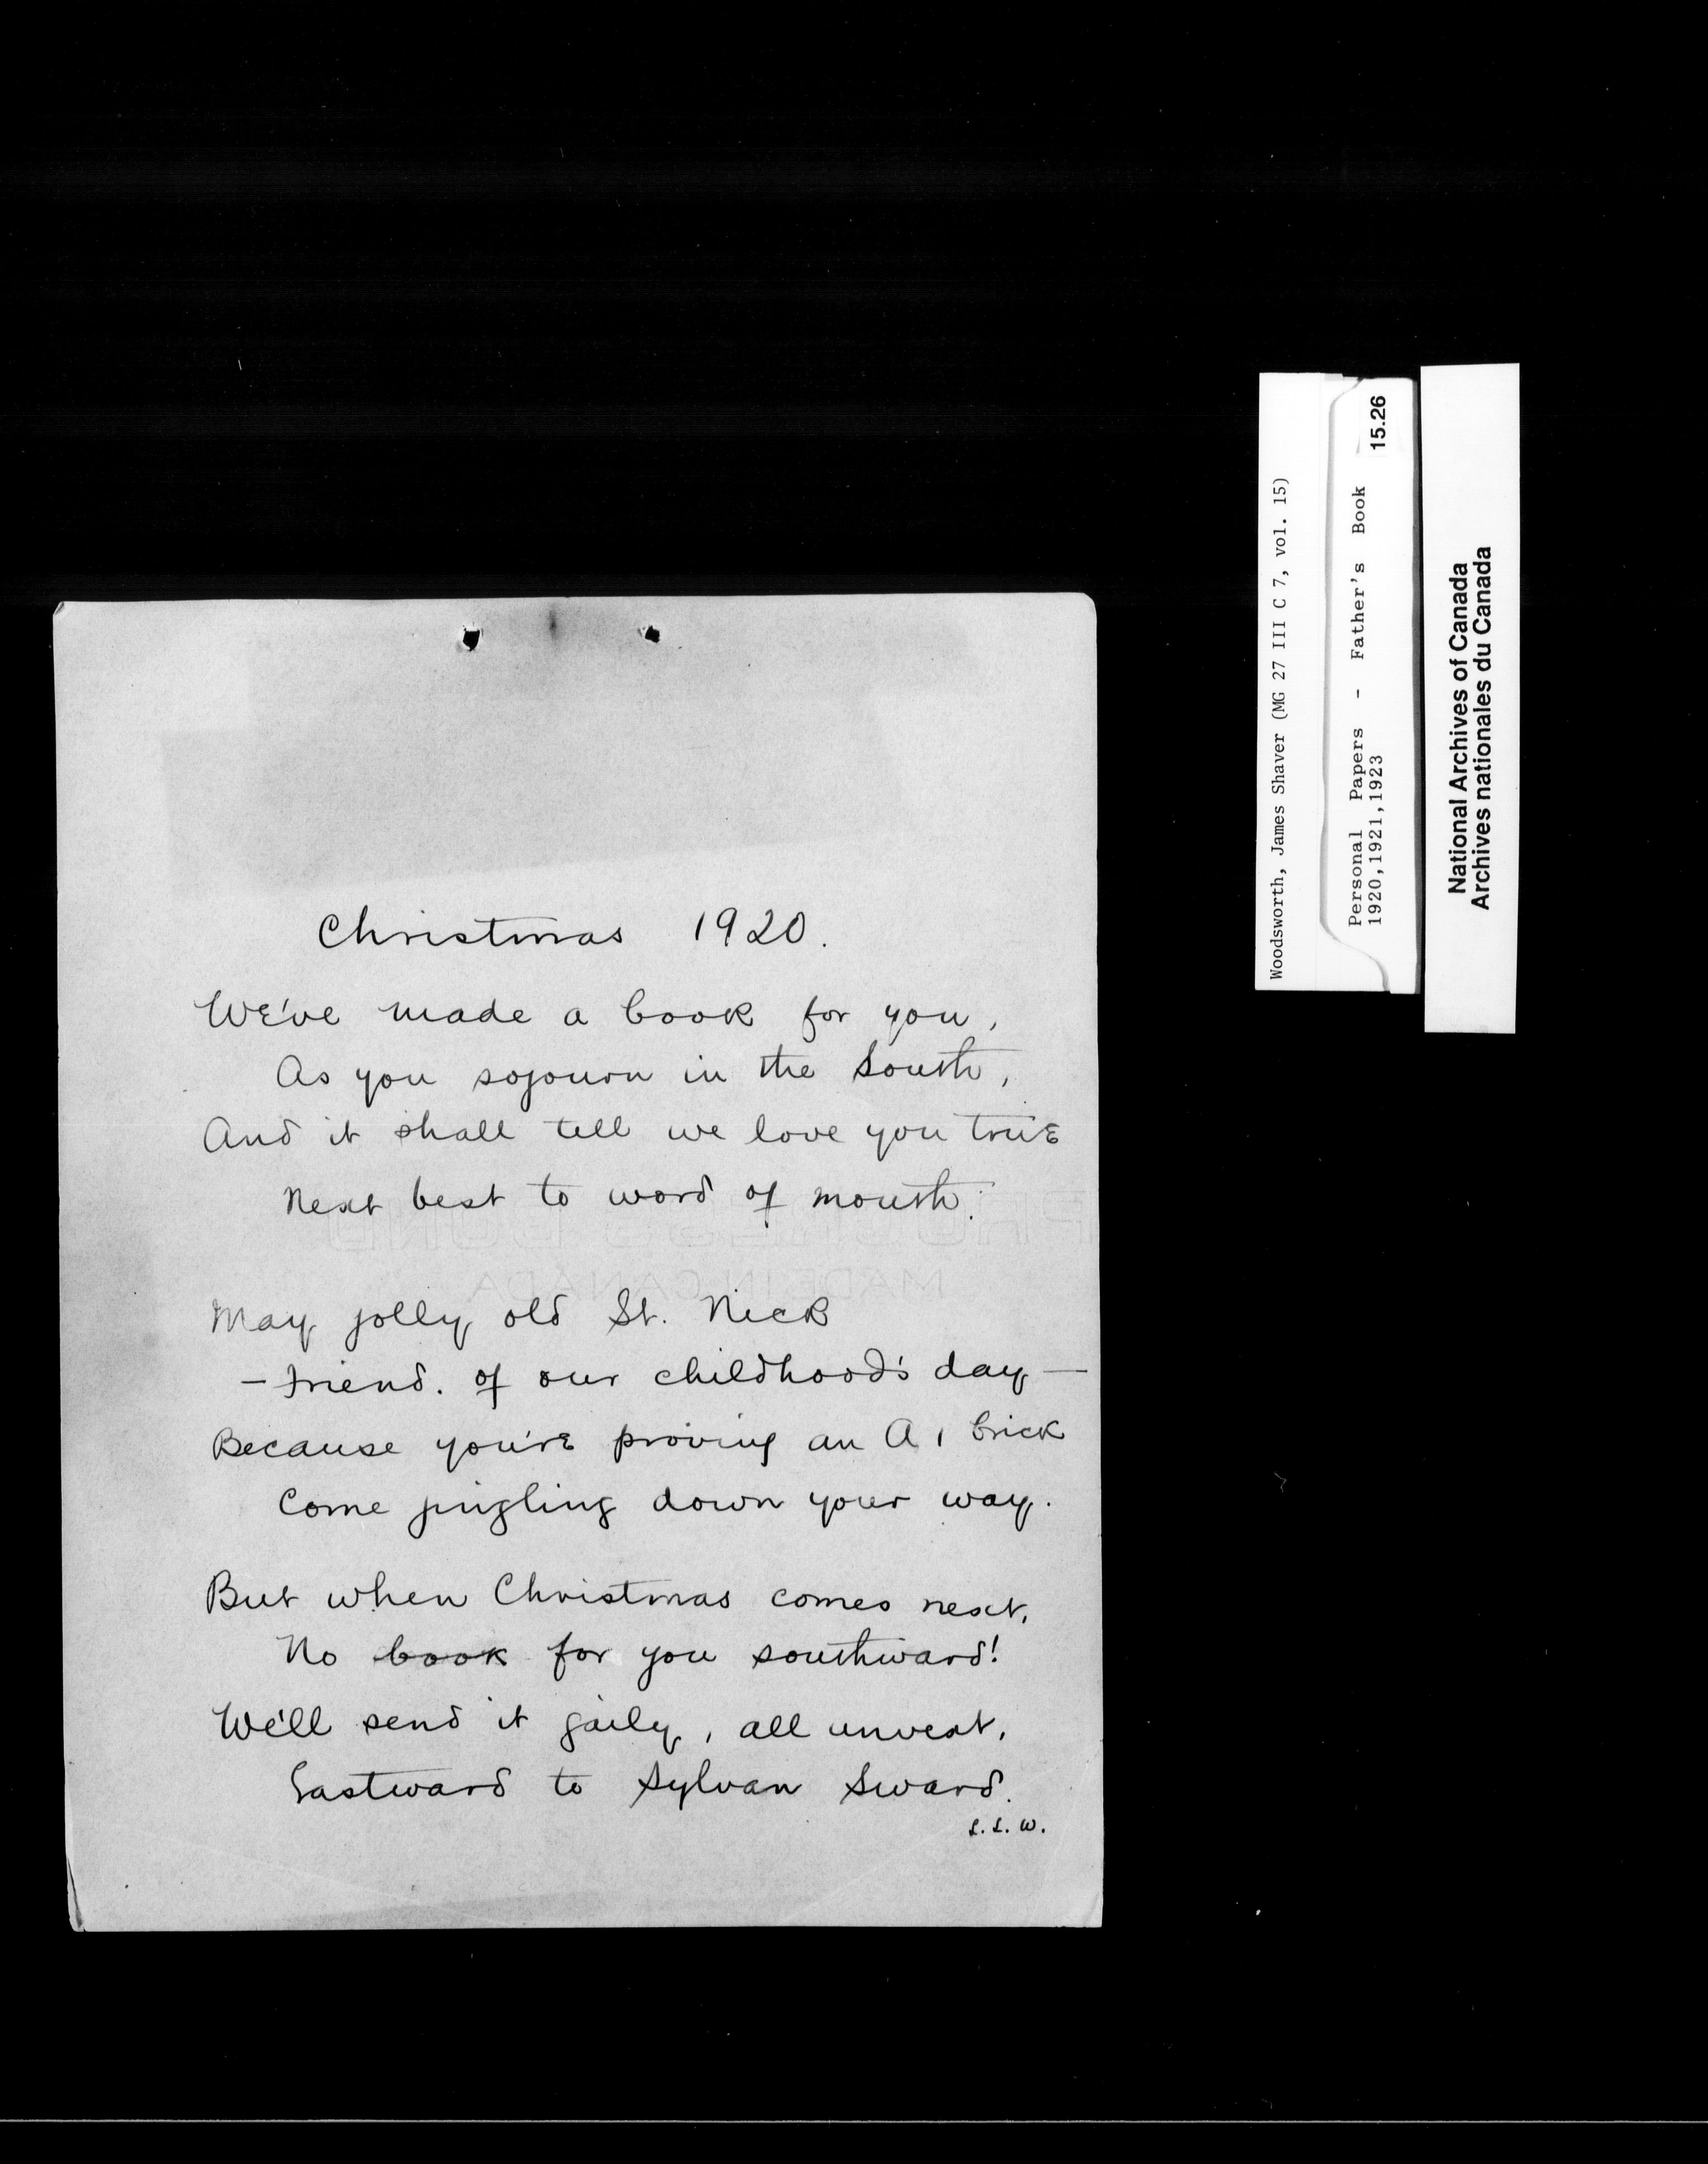 Christmas 1920.
We've made a book for you,
As you sojourn in the South,
And it shall tell we love you true
Next best to word of mouth.
May jolly old St. Nick
— Friend. of our childhood's day —
Because you're proving an A 1 brick
Come jingling down your way.
But when Christmas comes next,
No book for you southward!
We'll send it gaily, all unvext,
Eastward to Sylvan Sward.
L. L. W.
MADE IN CANADA
Woodsworth, James Shaver (MG 27 III C 7, vol. 15)
Personal Papers - Father's Book 15.26
1920,1921,1923
National Archives of Canada
Archives nationales du Canada